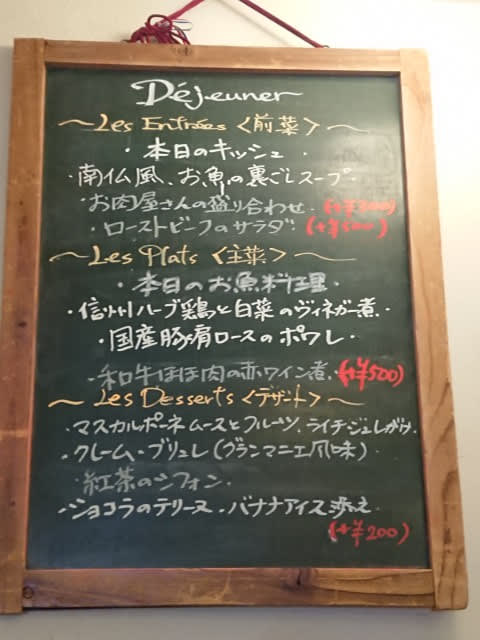 Déjeuner
～Les Entrées <前菜>～
・本日のキッシュ・
・南仏風、お魚の裏ごしスープ・
・お肉屋さんの盛り合わせ・
・ローストビーフのサラダ (+¥500)
～Les Plats <主菜>～
・本日のお魚料理
・信州ハーブ鶏と白菜のヴィネガー煮・
・国産豚肩ロースのポワレ・
・和牛ほほ肉の赤ワイン煮・(+¥500)
～Les Desserts <デザート>～
・マスカルポーネムースとフルーツ、ライチジュレがけ・
・クレーム・ブリュレ(グランマニエ風味)
紅茶のシフォン
・ショコラのテリーヌ・バナナアイス添え
(+¥200)